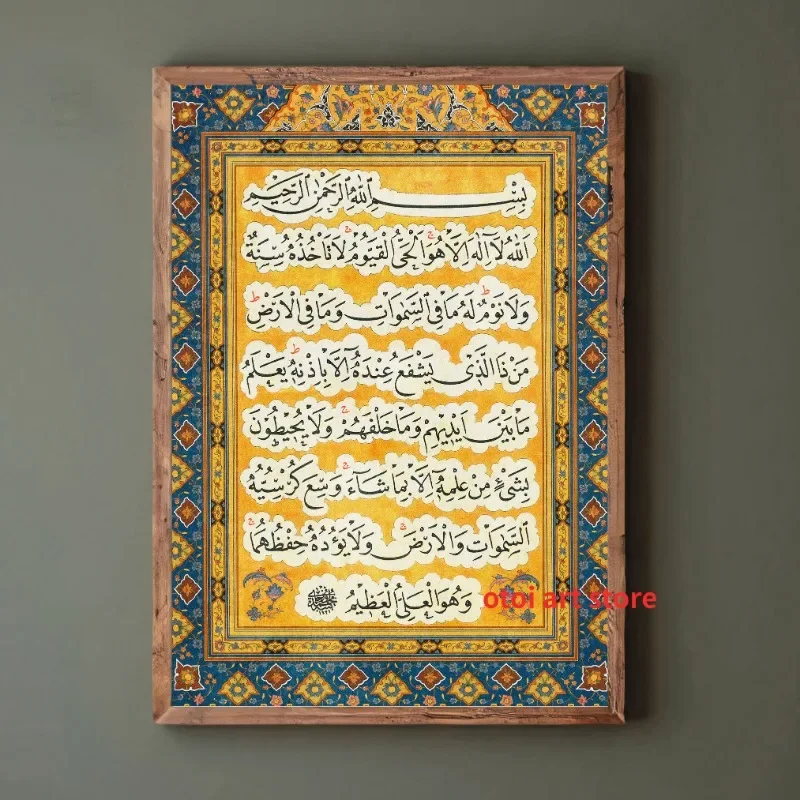 بِسْمِ اللّٰهِ الرَّحْمٰنِ الرَّحِيمِ
اَللّٰهُ لَٓا اِلٰهَ اِلَّا هُوَۚ اَلْحَيُّ الْقَيُّومُۚ لَا تَأْخُذُهُ سِنَةٌ
وَلَا نَوْمٌۜ لَهُ مَا فِي السَّمٰوَاتِ وَمَا فِي الْاَرْضِۜ
مَنْ ذَا الَّذِي يَشْفَعُ عِنْدَهُٓ اِلَّا بِاِذْنِهِۜ يَعْلَمُ
مَا بَيْنَ اَيْدِيهِمْ وَمَا خَلْفَهُمْۚ وَلَا يُحِيطُونَ
بِشَيْءٍ مِنْ عِلْمِهِٓ اِلَّا بِمَا شَٓاءَۚ وَسِعَ كُرْسِيُّهُ
السَّمٰوَاتِ وَالْاَرْضَۚ وَلَا يَؤُ۫دُهُ حِفْظُهُمَاۚ
وَهُوَ الْعَلِيُّ الْعَظِيمُ
otoi art store